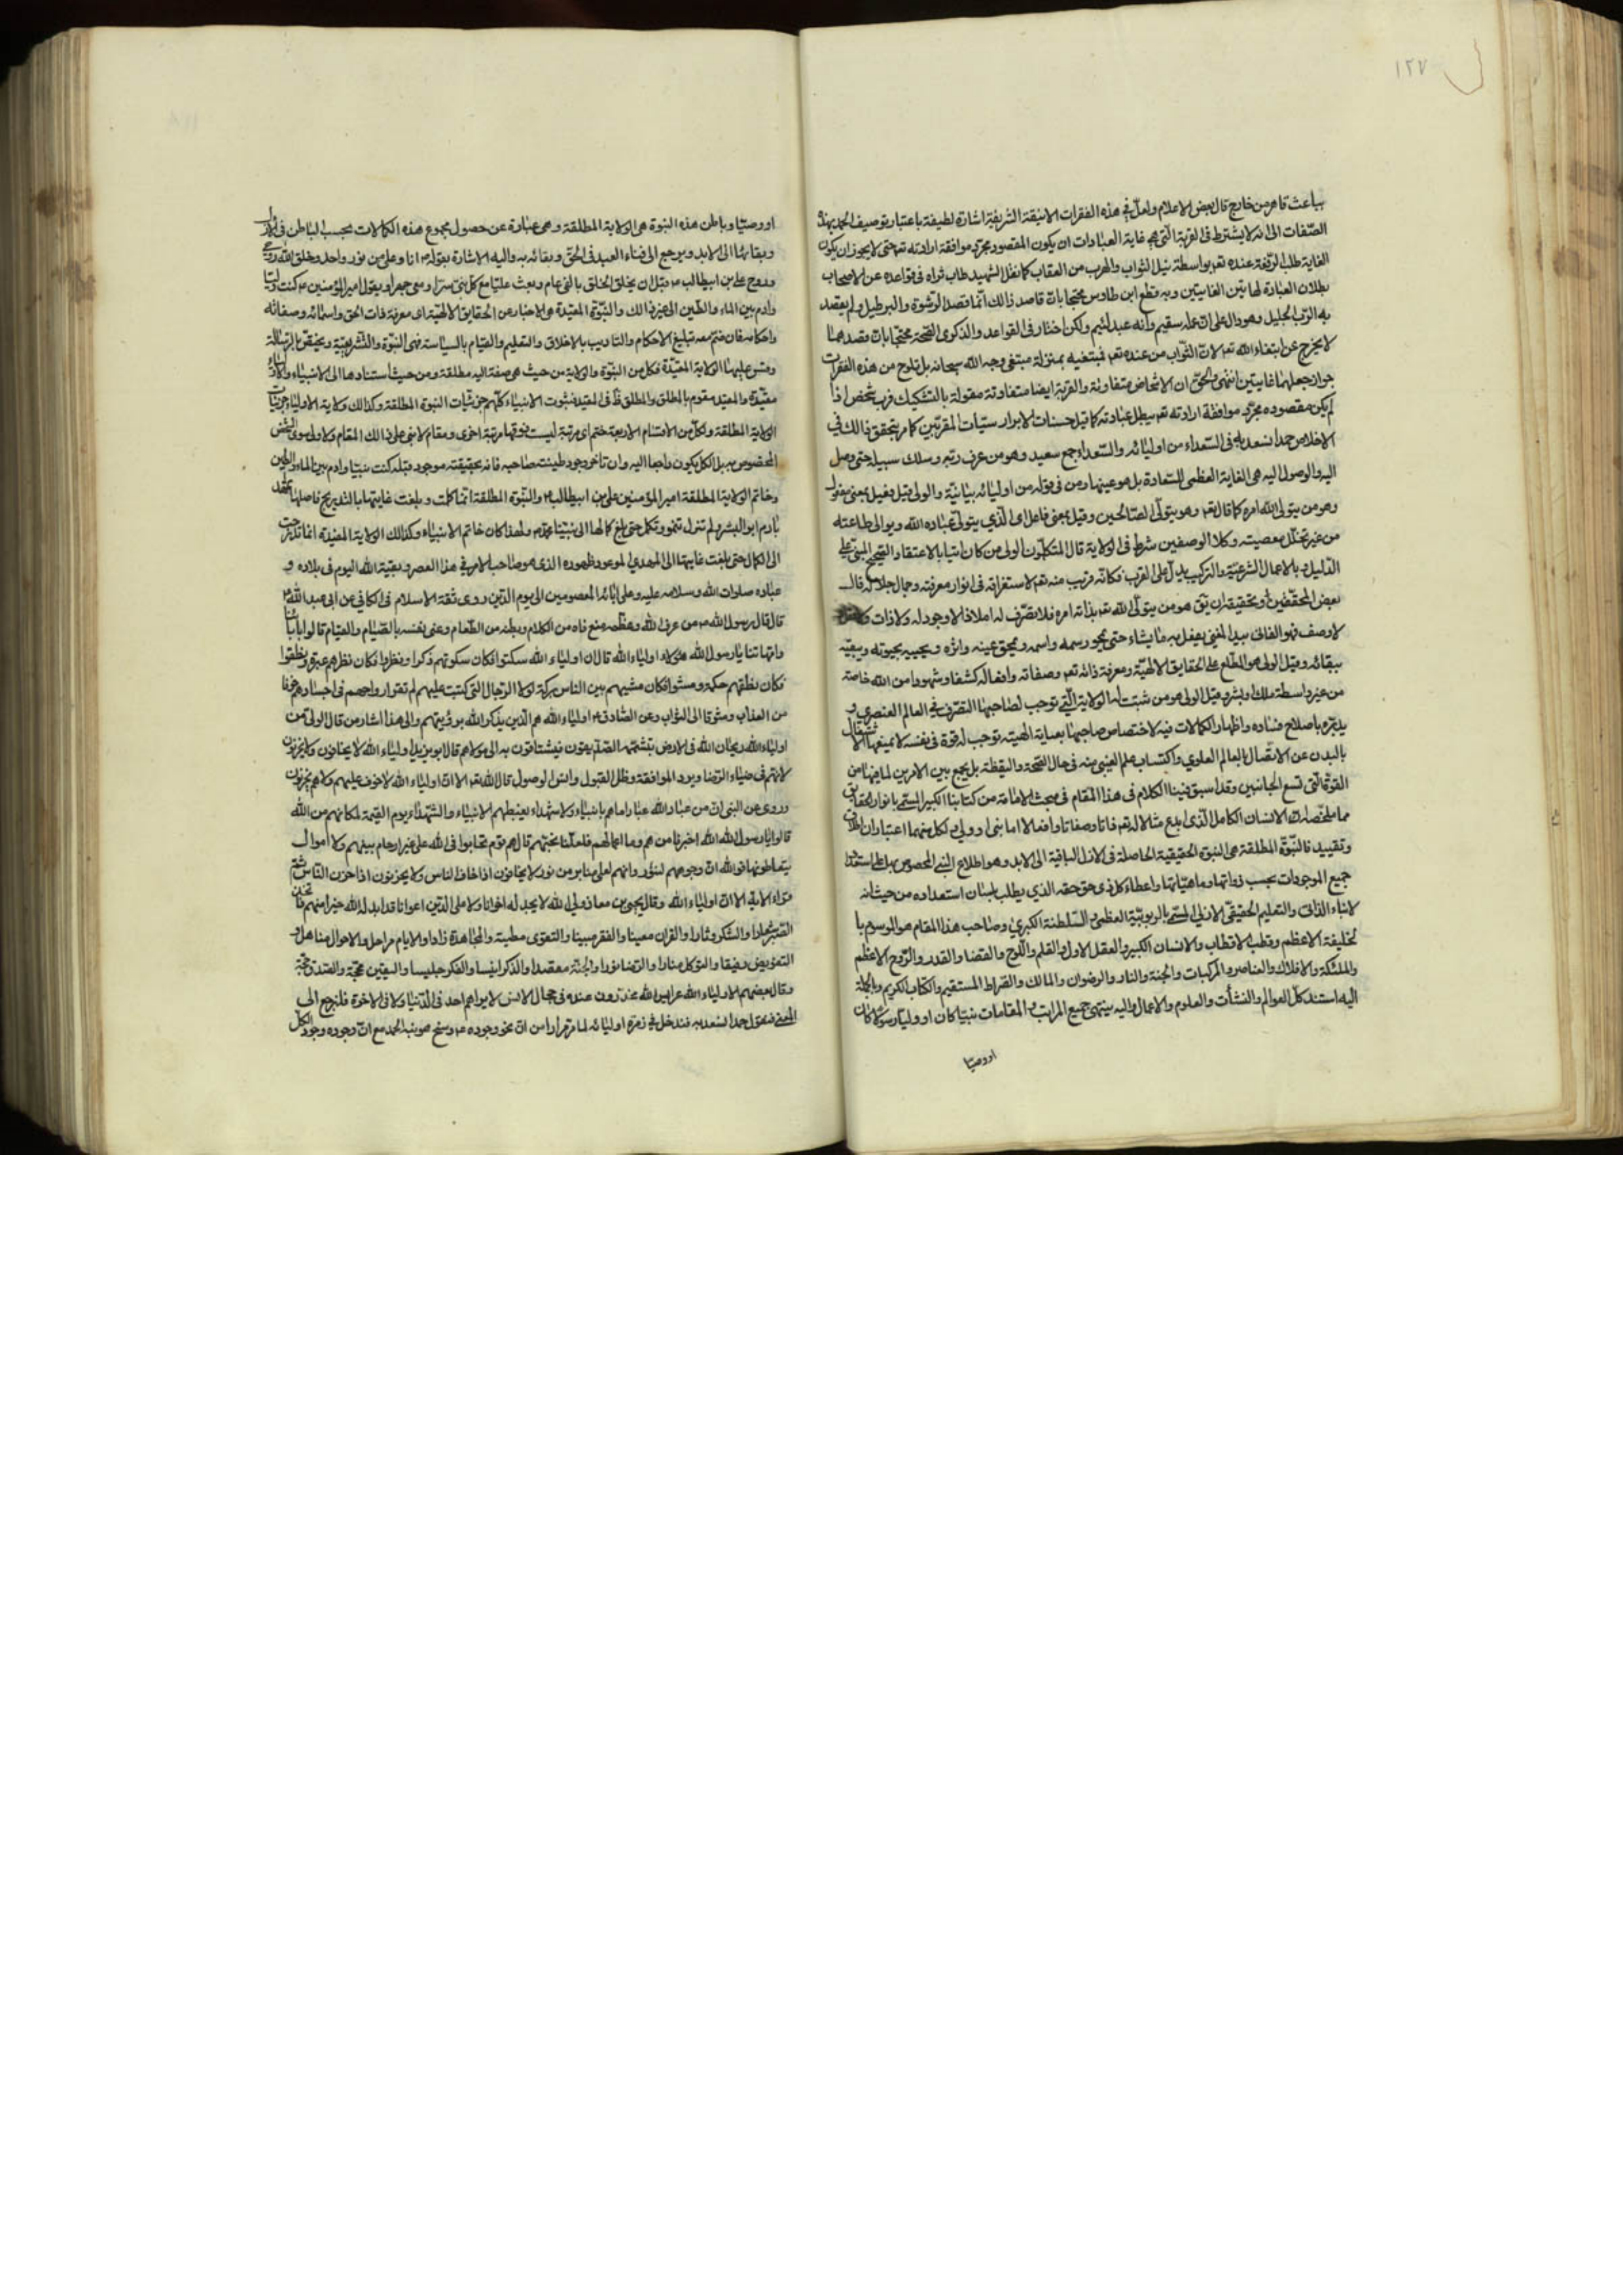 ١٢٧
بباعث قاهر من خارج قال بعض الاعلام ولعل في هذه الفقرات الانيقة الشريفة اشارة لطيفة باعتبار توصيف الحمد بهذه
الصفات الى انه لا يشترط في القربة التي هي غاية العبادات ان يكون المقصود مجرد موافقة ارادته تعه حتى لا يجوز ان يكون
الغاية طلب الرفعة عنده تعه بواسطة نيل الثواب والهرب من العقاب كما نقل الشهيد طاب ثراه في قواعده عن الاصحاب
بطلان العبادة لهاتين الغايتين وبه قطع ابن طاوس محتجا بان قاصد ذالك انما قصد الرشوة والبرطيل ولم يقصد
به الرب الجليل وهو دال على ان عمله سقيم وانه عبد لئيم ولكن اختار في القواعد والذكرى الصحة محتجا بان قصدهما
لا يخرج عن ابتغاء الله تعه لان الثواب من عنده تعه فمبتغيه بمنزلة مبتغى وجه الله سبحانه بل تلوح من هذه الفقرات
جواز جعلهما غايتين انتهى والحق ان الاشخاص متفاوتة والقربة ايضا متفاوتة مقولة بالتشكيك فرب شخص اذا
لم يكن مقصوده مجرد موافقة ارادته تعه يبطل عبادته كما قيل حسنات الابرار سيئات المقربين كما مر بتحقق ذالك في
الاخلاص حمدا نسعد به في السعداء من اوليائه والسعداء جمع سعيد وهو من عرف ربه وسلك سبيله حتى وصل
اليه والوصول اليه هي الغاية العظمى للسعادة بل هو عينها ومن في قوله من اوليائه بيانية والولى قيل فعيل بمعنى مفعول
وهو من يتولى الله امره كما قال تعه وهو يتولى الصالحين وقيل بمعنى فاعل اى الذي يتولى عبادة الله ويوالى طاعته
من غير تخلل معصيته وكلا الوصفين شرط في الولاية قال المتكلمون الولى من كان اتيا بالاعتقاد الصحيح المبني على
الدليل وبالاعمال الشرعية والتركيب يدل على القرب فكانه قريب منه تعه لاستغراقه في انوار معرفته وجمال جلاله قال
بعض المحققين وتحقيقه ان يق هو من يتولى الله تعه بذاته امره فلا تصرف له اصلا اذ لا وجود له ولا ذات
لا وصف فهو الفاني بيد المفني يفعل به ما يشاء حتى يمحو رسمه واسمه ويمحق عينه واثره ويحييه بحيوته ويبقيه
ببقائه وقيل الولى هو المطلع على الحقايق الالهية ومعرفة ذاته تعه وصفاته وافعاله كشفا وشهودا من الله خاصة
من غير واسطة ملك وبشر وقيل الولى هو من ثبتت له الولاية التي توجب لصاحبها التصرف في العالم العنصري و
يدبره باصلاح فساده واظهار الكمالات فيه لاختصاص صاحبها بعناية الهية توجب له قوة في نفسه لا يمنعها الاشتغال
بالبدن عن الاتصال بالعالم العلوي واكتساب علم الغيبي منه في حال الصحة واليقظة بل يجمع بين الامرين لما فيها من
القوة التي تسع الجانبين وقد اسبق منينا الكلام في هذا المقام في مبحث الامامة من كتابنا الكبير المسمى بانوار الحقايق
مما ملخصه ان الانسان الكامل الذي ابدع مثالا له تعه ذاتا وصفاتا وافعالا اما نبى او ولي ولكل منهما اعتباران اطلاق
وتقييد فالنبوة المطلقة هي النبوة الحقيقية الحاصلة في الازل الباقية الى الابد وهو اطلاع النبي المخصوص بها على استعداد
جميع الموجودات بحسب ذواتها وماهياتها واعطاء كل ذى حق حقه الذي يطلب بلسان استعداده من حيث انه
لانباء الذاتى والتعليم الحقيقي الازلي المسمى بالربوبية العظمى والسلطنة الكبرى وصاحب هذا المقام هو الموسوم با
لخليفة الاعظم وقطب الاقطاب والانسان الكبير والعقل الاول والقلم واللوح والقضا والقدر والروح الاعظم
والملئكة والافلاك والعناصر والمركبات والجنة والنار والرضوان والمالك والصراط المستقيم والكتاب الكريم وبالجملة
اليه استند كل العوالم والنشأت والعلوم والاعمال واليه ينتهى جميع المراتب والمقامات نبيا كان او وليا رسولا كان
او وصيا
او وصيا وباطن هذه النبوة هى الولاية المطلقة وهى عبارة عن حصول مجموع هذه الكمالات بحسب الباطن في الازل
وبقائها الى الابد ويرجع الى فناء العبد في الحق وبقائه به واليه الاشارة بقوله ص انا وعلى من نور واحد وخلق الله روحي
وروح علي بن ابيطالب ع قبل ان يخلق الخلق بالفي عام وبعث عليا مع كل نبي سرا ومعى جهرا وبقول امير المؤمنين ع كنت وليا
وادم بين الماء والطين الى غير ذالك والنبوة المقيدة هي الاخبار من الحقايق الالهية اى معرفة ذات الحق واسمائه وصفاته
واحكامه فان ضم معه تبليغ الاحكام والتاديب بالاخلاق والتعليم والقيام بالسياسة فهى النبوة والتشريعية ويختص بالرسالة
وقس عليها الولاية المقيدة فكل من النبوة والولاية من حيث هي صفة الهيه مطلقة ومن حيث استنادها الى الانبياء والاولياء
مقيدة والمقيد مقوم بالمطلق والمطلق ظ في المقيد فنبوت الانبياء كلهم جزئيات النبوة المطلقة وكذالك ولاية الاولياء جزئيات
الولاية المطلقة ولكل من الاقسام الاربعة ختم اى مرتبة ليست فوقها مرتبة اخرى ومقام لانبى على ذالك المقام ولا ولى سوى الشخص
المخصوص به بل الكل يكون راجعا اليه وان تاخر وجود طينت صاحبه فانه بحقيقته موجود قبله كنت نبيا وادم بين الماء والطين
وخاتم الولاية المطلقة امير المؤمنين علي بن ابيطالب ع والنبوة المطلقة انما كملت وبلغت غايتها بالتدريج فاصلها تمهد
بادم ابو البشر ولم تزل تنمو وتكمل حتى بلغ كمالها الى نبينا محمد ص ولهذا كان خاتم الانبياء وكذالك الولاية المقيدة انما تدرجت
الى الكمال حتى بلغت غايتها الى المهدي الموعود ظهوره الذى هو صاحب الامر في هذا العصر وبقية الله اليوم في بلاده و
عباده صلوات الله وسلامه عليه وعلى ابائه المعصومين الى يوم الدين روى ثقة الاسلام في الكافي عن ابى عبد الله ع
قال قال رسول الله ص من عرف الله وعظمه منع فاه من الكلام وبطنه من الطعام وعنى نفسه بالصيام والقيام قالوا بابائنا
وامهاتنا يا رسول الله هؤلاء اولياء الله قال ان اولياء الله سكتوا فكان سكوتهم ذكرا ونظروا فكان نظرهم عبرة ونطقوا
فكان نطقهم حكمة ومشوا فكان مشيهم بين الناس بركة لولا الاجال التي كتبت عليهم لم تقر ارواحهم في اجسادهم خوفا
من العذاب وشوقا الى الثواب وعن الصادق ع اولياء الله هم الذين يذكر الله برؤيتهم والى هذا اشار من قال الولى من
اولياء الله ريحان الله في الارض يتشممه الصديقون فيشتاقون به الى مولاهم قال ابو يزيد اولياء الله لا يخافون ولا يحزنون
لانهم في ضياء الرضا وبرد الموافقة وظل القبول وانس الوصول قال الله تعه الا ان اولياء الله لا خوف عليهم ولا هم يحزنون
وروى عن النبي ان من عباد الله عبادا ما هم بانبياء ولا شهداء يغبطهم الانبياء والشهداء يوم القيمة لمكانهم من الله
قالوا يا رسول الله اخبرنا من هم وما اعمالهم فلعلنا نحبهم قال هم قوم تحابوا في الله على غير ارحام بينهم ولا اموال
يتعاطونها فو الله ان وجوههم لنور وانهم لعلى منابر من نور لا يخافون اذا خاف الناس ولا يحزنون اذا حزن الناس ثم
قراء الاية الا ان اولياء الله وقال يحيى بن معاذ ولي الله لا يجد له اخوانا ولا على الدين اعوانا قد ابدله الله خيرا منهم
الصبر شعارا والشكر دثارا والقران معينا والفقر مبينا والتقوى مطية والمجاهدة زادا والايام مراحل والاحوال مناهل و
التفويض رفيقا والتوكل منارا والرضا نورا والجنة مقصدا والذكر انيسا والفكر جليسا واليقين محجة والصدق حجة
وقال بعضهم الاولياء الله عرايس الله مخدرون عنده في حجال الانس لا يراهم احد في الدنيا ولا في الاخرة فلنرجع الى
المعنى فنقول حمدا نسعد به فندخل في زمرة اوليائه لما مر مرارا من ان نحو وجوده ص وسنخ هويته الحمد مع ان وجوده وجود الكل